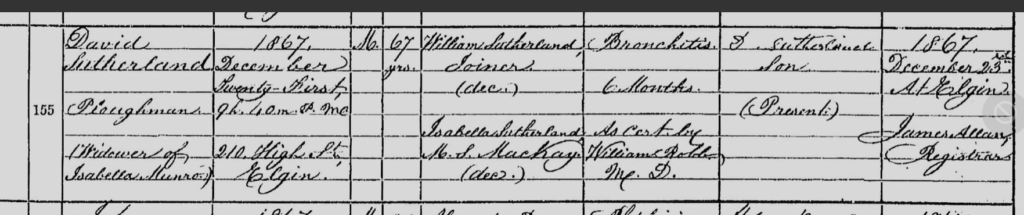 155
David
Sutherland
Ploughman
(Widower of
Isabella Munro)
1867,
December
Twenty-First
9h. 40m. P. M.
210, High St,
Elgin.
M.
67
yrs.
William Sutherland,
Joiner
(dec.)
Isabella Sutherland
M. S. MacKay
(dec.)
Bronchitis.
6 Months.
As cert. by
William Robb
M. D.
D. Sutherland
Son
(Present)
1867.
December 23rd
At Elgin
James Allan,
Registrar
1867